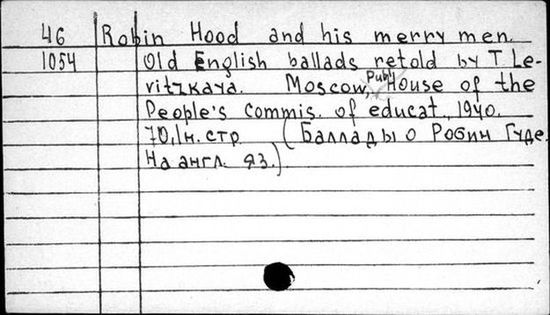 46 Robin Hood and his merry men.
1054 Old English ballads retold by T. Le-
vitzkaya. Moscow, Publ. House of the
People's Commis. of educat., 1940.
70,1н. стр (Баллады о Робин Гуде.
На англ. яз.)